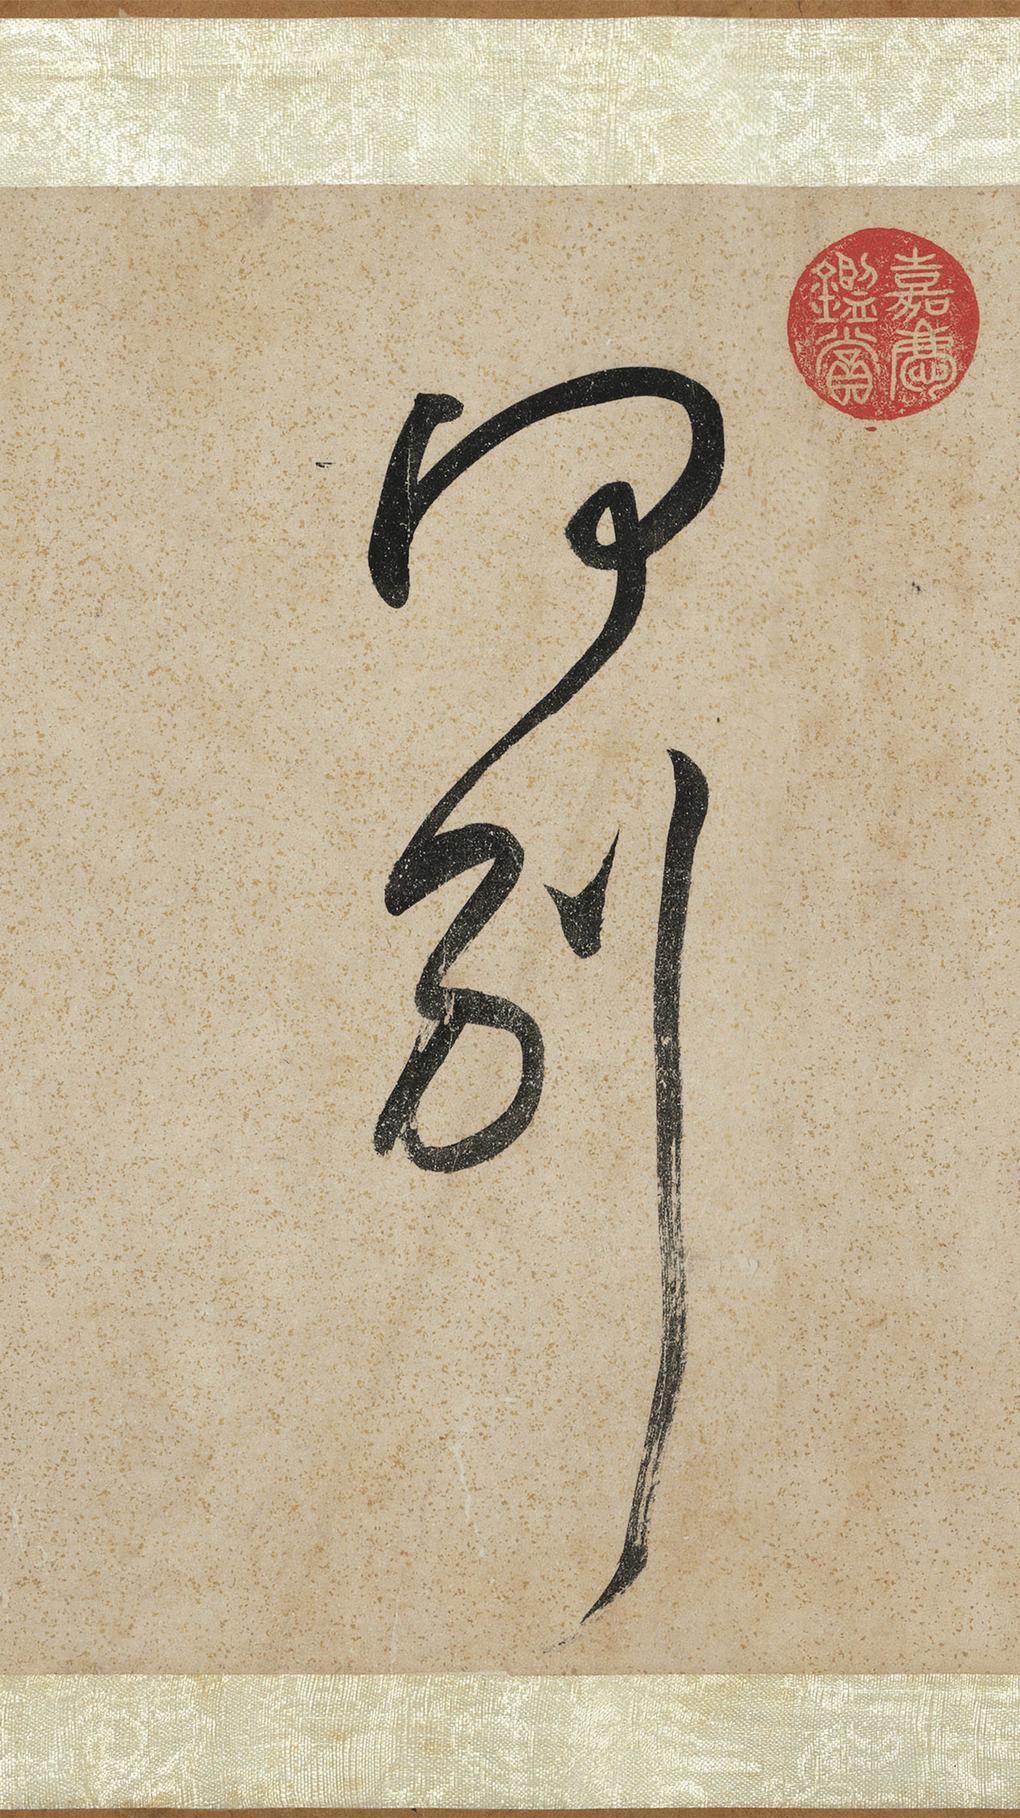 嘉慶
鑑賞
別